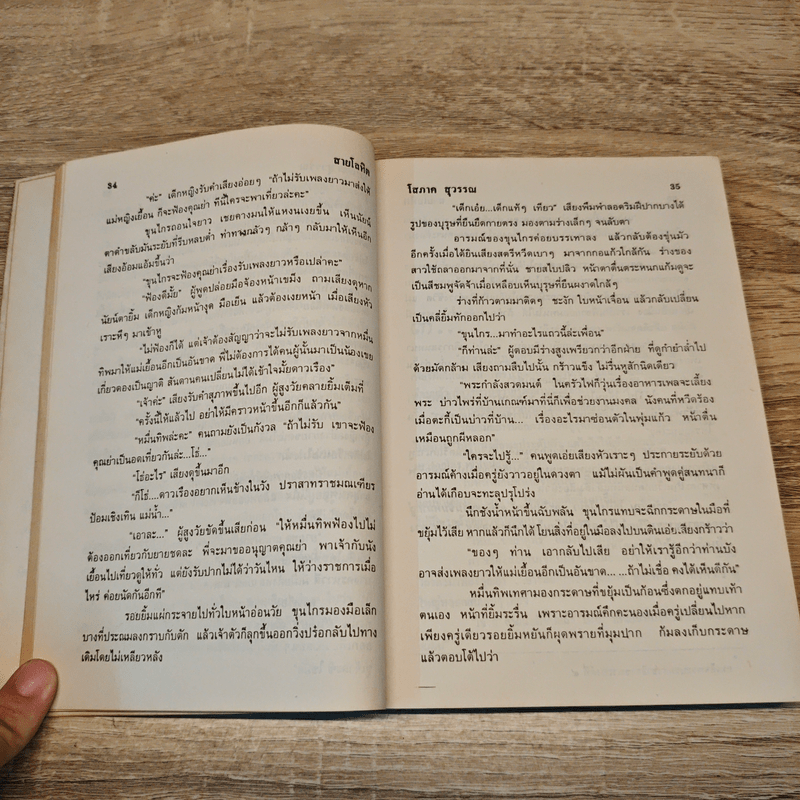 34
สายโลหิต
"ค่ะ" เด็กหญิงรับคำเสียงอ่อยๆ "ถ้าไม่รับเพลงยาวมาส่งให้
แม่หญิงเยื้อน ก็จะฟ้องคุณย่า ทีนี้ใครจะพาเที่ยวล่ะคะ"
ขุนไกรถอนใจยาว เชยคางมนให้แหงนเงยขึ้น เห็นนัยน์
ตาดำขลับมันระยับที่รีบหลบต่ำ ท่าทางกลัวๆ กล้าๆ กลับมาให้เห็นอีก
เสียงอ้อมแอ้มขึ้นว่า
"ขุนไกรจะฟ้องคุณย่าเรื่องรับเพลงยาวหรือเปล่าคะ"
"ฟ้องดีมั้ย" ผู้พูดปล่อยมือจ้องหน้าเขม็ง ถามเสียงดุหาก
นัยน์ตายิ้ม เด็กหญิงก้มหน้างุด มือเย็น แล้วต้องเงยหน้า เมื่อเสียงหัว
เราะหึๆ มาเข้าหู
"ไม่ฟ้องก็ได้ แต่เจ้าต้องสัญญาว่าจะไม่รับเพลงยาวจากหมื่น
ทิพมาให้แม่เยื้อนอีกเป็นอันขาด พี่ไม่ต้องการได้คนผู้นั้นมาเป็นน้องเขย
เกี่ยวดองเป็นญาติ สันดานคนเปลี่ยนไม่ได้เข้าใจมั้ยดาวเรือง"
"เจ้าค่ะ" เสียงรับคำสุภาพขึ้นไปอีก ผู้สูงวัยคลายยิ้มเต็มที่
"ครั้งนี้ให้แล้วไป อย่าให้มีคราวหน้าขึ้นอีกก็แล้วกัน"
"หมื่นทิพล่ะคะ" คนถามยังเป็นกังวล "ถ้าไม่รับ เขาจะฟ้อง
คุณย่าเป็นอดเที่ยวกันล่ะ...โธ่..."
"โธ่อะไร" เสียงดุขึ้นมาอีก
"ก็โธ่....ดาวเรืองอยากเห็นช้างในวัง ปราสาทราชมณเฑียร
ป้อมเชิงเทิน แม่น้ำ..."
"เอาละ..." ผู้สูงวัยขัดขึ้นเสียก่อน "ให้หมื่นทิพฟ้องไปไม่
ต้องออกเที่ยวกับยายชดละ พี่จะมาขออนุญาตคุณย่า พาเจ้ากับนัง
เยื้อนไปเที่ยวดูให้ทั่ว แต่ยังรับปากไม่ได้ว่าวันไหน ให้ว่างราชการเมื่อ
ไหร่ ค่อยนัดกันอีกที"
รอยยิ้มแผ่กระจายไปทั่วใบหน้าอ่อนวัย ขุนไกรมองมือเล็ก
บางที่ประณมลงกราบกับตัก แล้วเจ้าตัวก็ลุกขึ้นออกวิ่งปร๋อกลับไปทาง
เดิมโดยไม่เหลียวหลัง
โสภาค สุวรรณ
35
"เด็กเอ๋ย...เด็กแท้ๆ เทียว" เสียงพึมพำลอดริมฝีปากบางได้
รูปของบุรุษที่ยืนยืดกายตรง มองตามร่างเล็กๆ จนลับตา
อารมณ์ของขุนไกรค่อยบรรเทาลง แล้วกลับต้องขุ่นมัว
อีกครั้งเมื่อได้ยินเสียงสตรีหวีดเบาๆ มาจากกอแก้วใกล้กัน ร่างของ
สาวใช้ถลาออกมาจากที่นั่น ชายสไบปลิว หน้าตาตื่นตระหนกแก้มดูจะ
เป็นสีชมพูจัดจ้าเมื่อเหลือบเห็นบุรุษที่ยืนผงาดใกล้ๆ
ร่างที่ก้าวตามมาติดๆ ชะงัก ใบหน้าเจื่อน แล้วกลับเปลี่ยน
เป็นคลี่ยิ้มทักออกไปว่า
"ขุนไกร...มาทำอะไรแถวนี้ล่ะเพื่อน"
"ก็ท่านล่ะ" ผู้ตอบมีร่างสูงเพรียวกว่าอีกฝ่าย ที่ดูกำยำล่ำไป
ด้วยมัดกล้าม เสียงถามสืบไปนั้น กร้าวแข็ง ไม่รื่นหูสักนิดเดียว
"พระกำลังสวดมนต์ ในครัวไฟก็วุ่นเรื่องอาหารเพลจะเลี้ยง
พระ บ่าวไพร่ที่บ้านเกณฑ์มาที่นี่ก็เพื่อช่วยงานมงคล นังคนที่หวีดร้อง
เมื่อตะกี้เป็นบ่าวที่บ้าน... เรื่องอะไรมาซ่อนตัวในพุ่มแก้ว หน้าตื่น
เหมือนถูกผีหลอก"
"ใครจะไปรู้..." คนพูดเอ่ยเสียงหัวเราะๆ ประกายระยับด้วย
อารมณ์ค้างเมื่อครู่ยังวาวอยู่ในดวงตา แม้ไม่ผันเป็นคำพูดคู่สนทนาก็
อ่านได้เกือบจะทะลุปรุโปร่ง
นึกชังน้ำหน้าขึ้นฉับพลัน ขุนไกรแทบจะฉีกกระดาษในมือที่
ขยุ้มไว้เสีย หากแล้วก็นึกได้ โยนสิ่งที่อยู่ในมือลงไปบนดินเอ่ย.สียงกร้าวว่า
"ของๆ ท่าน เอากลับไปเสีย อย่าให้เรารู้อีกว่าท่านบัง
อาจส่งเพลงยาวให้แม่เยื้อนอีกเป็นอันขาด... ...ถ้าไม่เชื่อ คงได้เห็นดีกัน"
หมื่นทิพเทศามองกระดาษที่ขยุ้มเป็นก้อนซึ่งตกอยู่แทบเท้า
ตนเอง หน้าที่ยิ้มระรื่น เพราะอารมณ์คึกคะนองเมื่อครู่เปลี่ยนไปหาก
เพียงครู่เดียวรอยยิ้มหยันก็ผุดพรายที่มุมปาก ก้มลงเก็บกระดาษ
แล้วตอบโต้ไปว่า